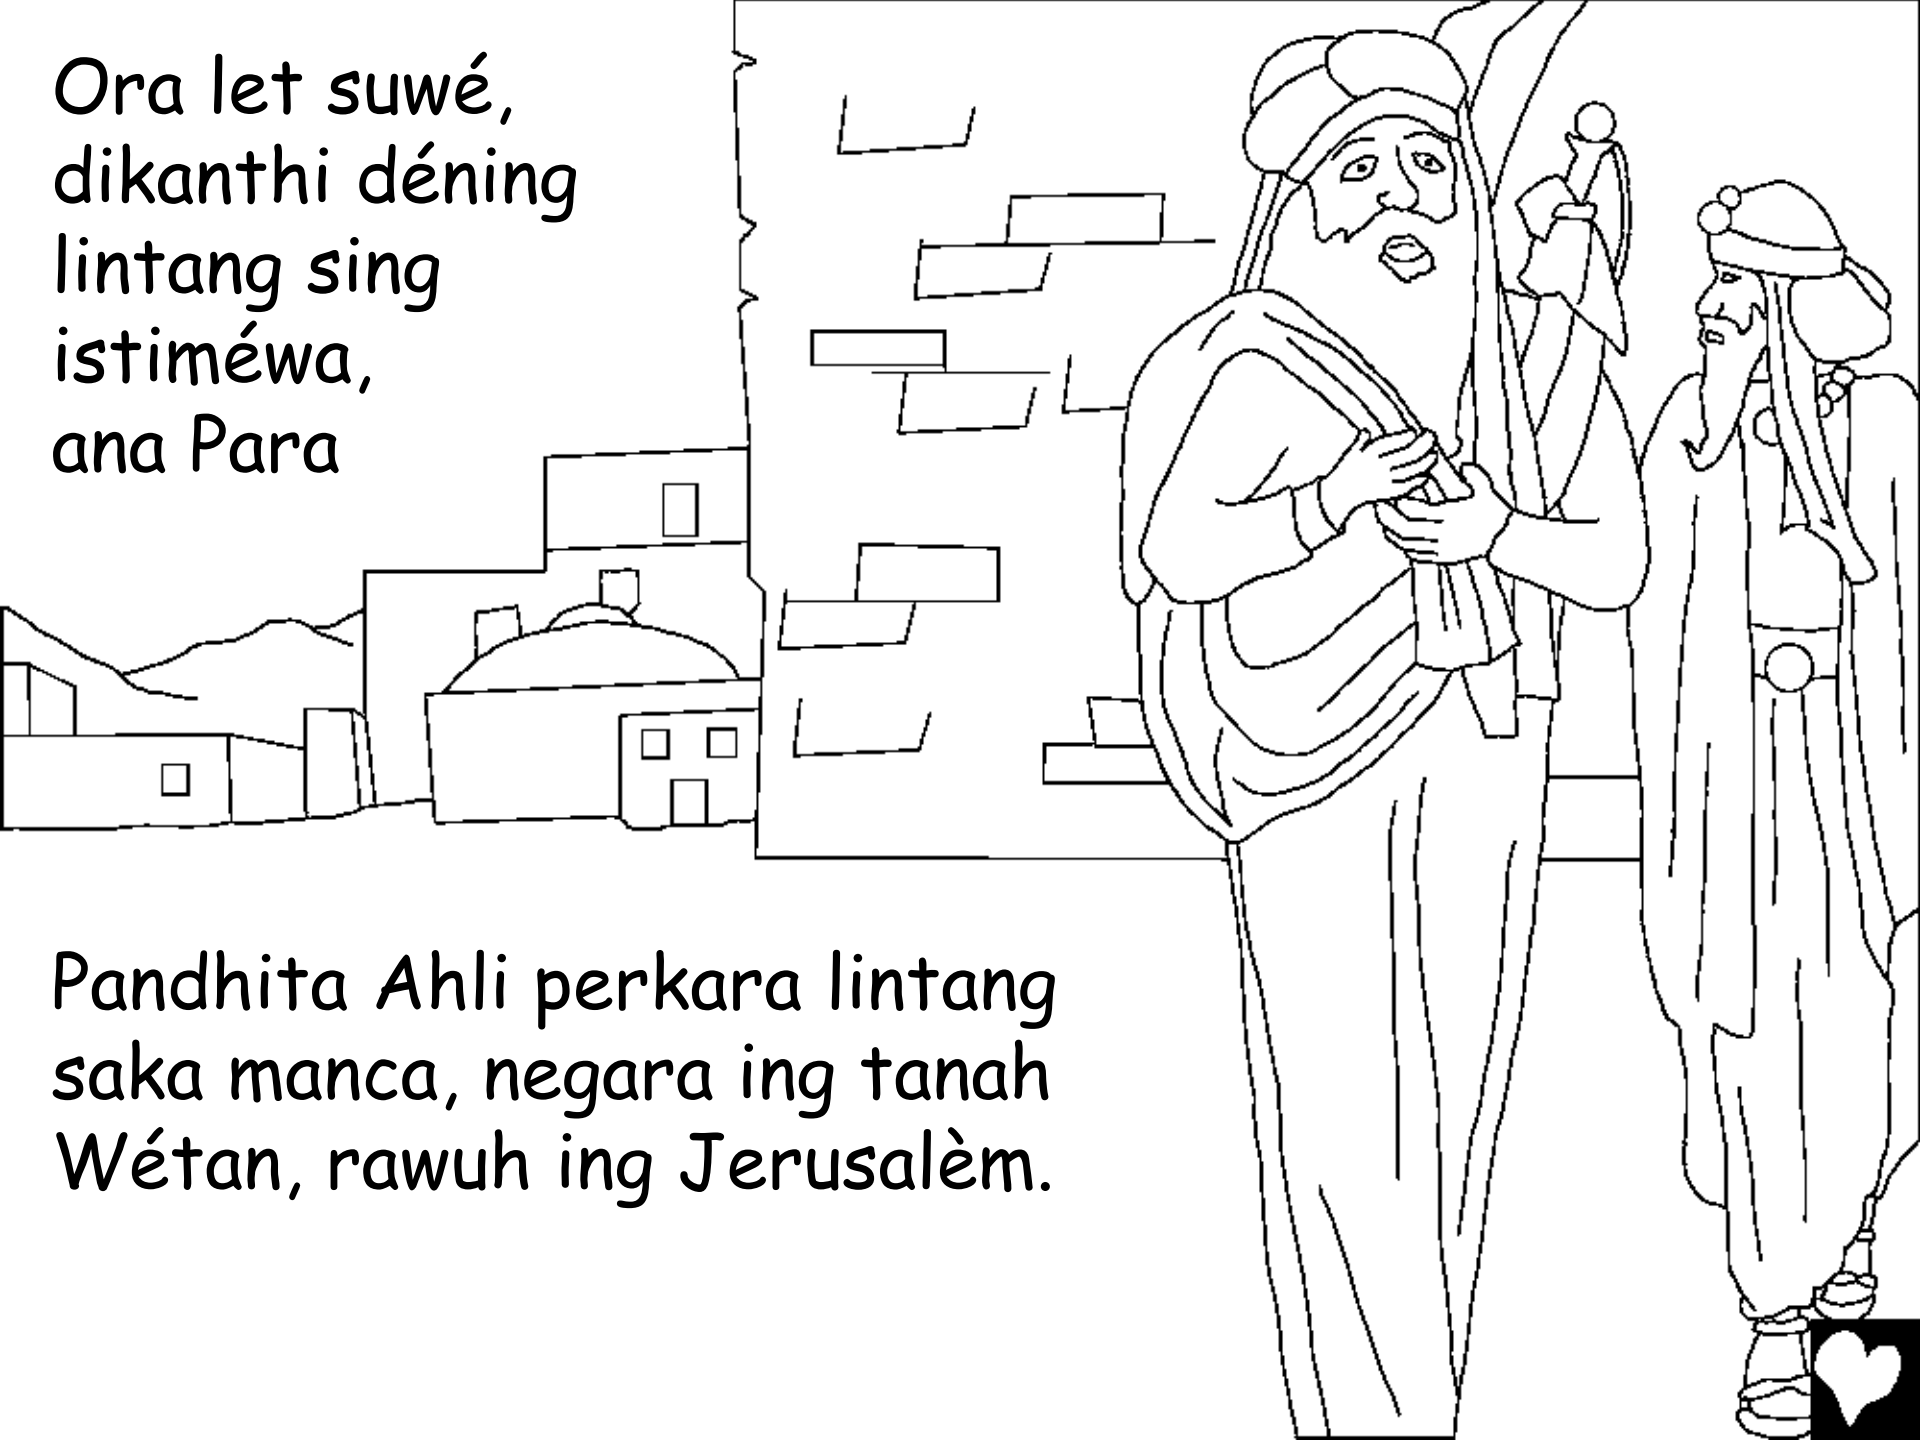 Ora let suwé,
dikanthi déning
lintang sing
istiméwa,
ana Para
Pandhita Ahli perkara lintang
saka manca, negara ing tanah
Wétan, rawuh ing Jerusalèm.